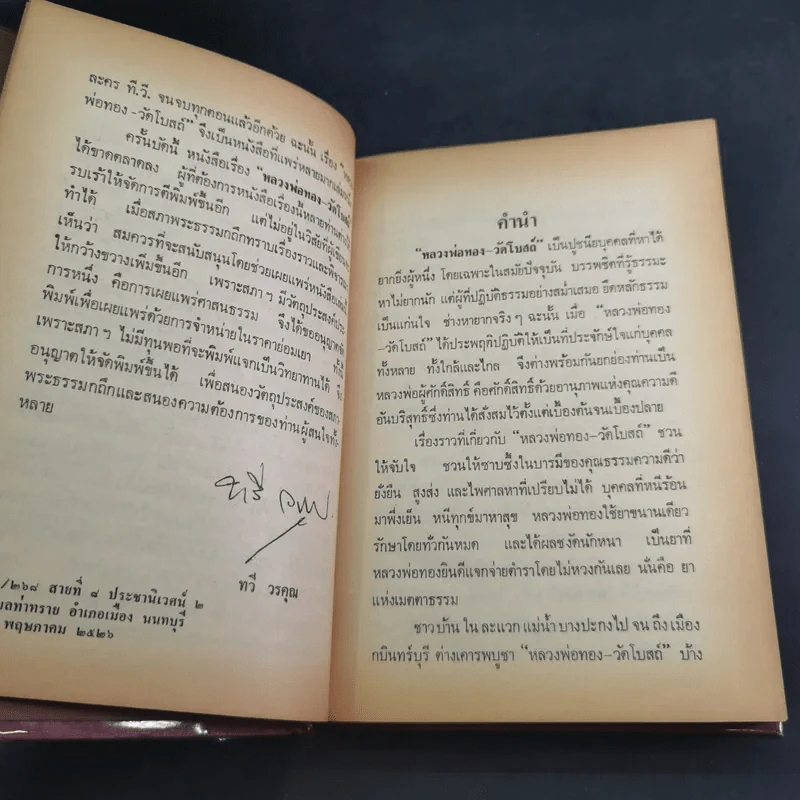 ละคร ที.วี. จนจบทุกตอนแล้วอีกด้วย ฉะนั้น เรื่อง
พ่อทอง-วัดโบสถ์" จึงเป็นหนังสือที่แพร่หลายมาก
ครั้นบัดนี้ หนังสือเรื่อง "หลวงพ่อทอง-วัดโบสถ์"
ได้ขาดตลาดลง ผู้ที่ต้องการหนังสือเรื่องนี้หลายท่าน
รบเร้าให้จัดการตีพิมพ์ขึ้นอีก แต่ไม่อยู่ในวิสัยที่ผู้เขียน
ทำได้ เมื่อสภาพระธรรมกถึกทราบเรื่องราวและพิจารณา
เห็นว่า สมควรที่จะสนับสนุนโดยช่วยเผยแพร่หนังสือเล่มนี้
ให้กว้างขวางเพิ่มขึ้นอีก เพราะสภาฯ มีวัตถุประสงค์
การหนึ่ง คือการเผยแพร่ศาสนธรรม จึงได้ขออนุญาตจัด
พิมพ์เพื่อเผยแพร่ด้วยการจำหน่ายในราคาย่อมเยา ทั้งนี้
เพราะสภาฯ ไม่มีทุนพอที่จะพิมพ์แจกเป็นวิทยาทานได้ จึง
อนุญาตให้จัดพิมพ์ขึ้นได้ เพื่อสนองวัตถุประสงค์ของสภา-
พระธรรมกถึกและสนองความต้องการของท่านผู้สนใจทั้ง-
หลาย
ทวี วรคุณ
/๒๖๘ สายที่ ๘ ประชานิเวศน์ ๒
บลท่าทราย อำเภอเมือง นนทบุรี
พฤษภาคม ๒๕๒๖
คำนำ
"หลวงพ่อทอง-วัดโบสถ์" เป็นปูชนียบุคคลที่หาได้
ยากยิ่งผู้หนึ่ง โดยเฉพาะในสมัยปัจจุบัน บรรพชิตที่รู้ธรรมะ
หาไม่ยากนัก แต่ผู้ที่ปฏิบัติธรรมอย่างสม่ำเสมอ ยึดหลักธรรม
เป็นแก่นใจ ช่างหายากจริงๆ ฉะนั้น เมื่อ "หลวงพ่อทอง
-วัดโบสถ์" ได้ประพฤติปฏิบัติให้เป็นที่ประจักษ์ใจแก่บุคคล
ทั้งหลาย ทั้งใกล้และไกล จึงต่างพร้อมกันยกย่องท่านเป็น
หลวงพ่อผู้ศักดิ์สิทธิ์ คือศักดิ์สิทธิ์ด้วยอานุภาพแห่งคุณความดี
อันบริสุทธิ์ซึ่งท่านได้สั่งสมไว้ตั้งแต่เบื้องต้นจนเบื้องปลาย
เรื่องราวที่เกี่ยวกับ "หลวงพ่อทอง-วัดโบสถ์" ชวน
ให้จับใจ ชวนให้ซาบซึ้งในบารมีของคุณธรรมความดีว่า
ยั่งยืน สูงส่ง และไพศาลหาที่เปรียบไม่ได้ บุคคลที่หนีร้อน
มาพึ่งเย็น หนีทุกข์มาหาสุข หลวงพ่อทองใช้ยาขนานเดียว
รักษาโดยทั่วกันหมด และได้ผลชงัดนักหนา เป็นยาที่
หลวงพ่อทองยินดีแจกจ่ายตำราโดยไม่หวงกันเลย นั่นคือ ยา
แห่งเมตตาธรรม
ชาวบ้าน ใน ละแวก แม่น้ำ บางปะกงไป จน ถึง เมือง
กบินทร์บุรี ต่างเคารพบูชา "หลวงพ่อทอง-วัดโบสถ์" บ้าง